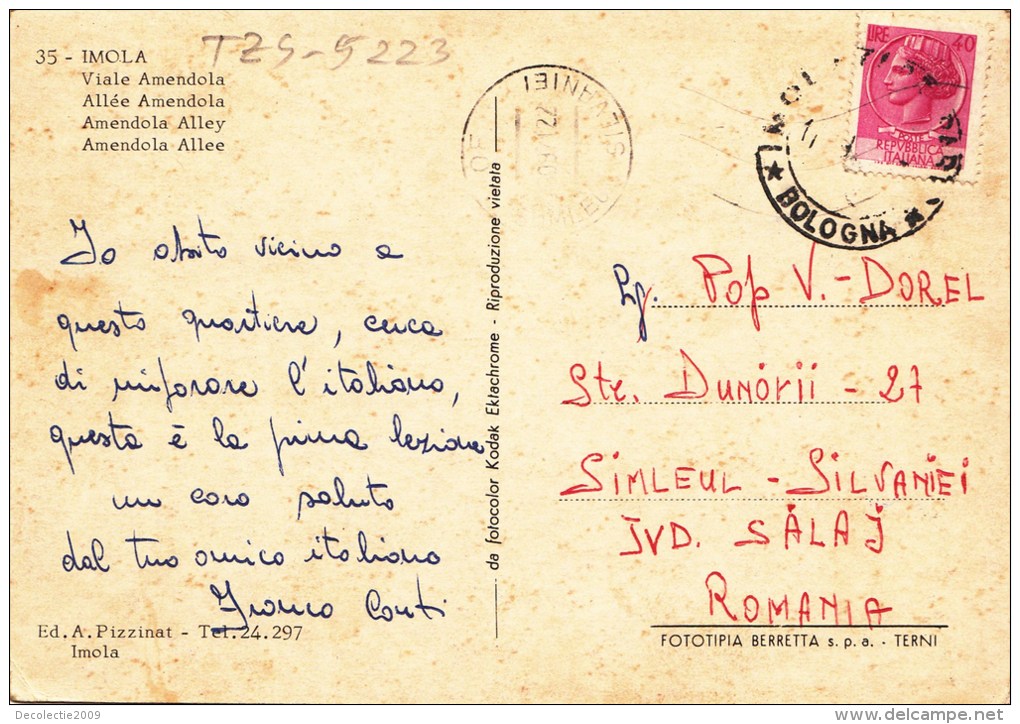 35 - IMOLA
Viale Amendola
Allée Amendola
Amendola Alley
Amendola Allee
TZS-5223
Io abito vicino a
questo quartiere, cerca
di rinforzare l'italiano,
questa è la prima lezione
un caro saluto
dal tuo amico italiano
Franco Conti
Ed. A. Pizzinat - Tel. 24.297
Imola
da fotocolor Kodak Ektachrome - Riproduzione vietata
SILVANIEI
LIRE 40
POSTE
REPVBBLICA
ITALIANA
★ BOLOGNA ★
Pop V. - DOREL
Str. Dunării - 27
SIMLEUL - SILVANIEI
JUD. SĂLAJ
ROMANIA
FOTOTIPIA BERRETTA s.p.a. - TERNI
Decolectie2009
delcampe.net